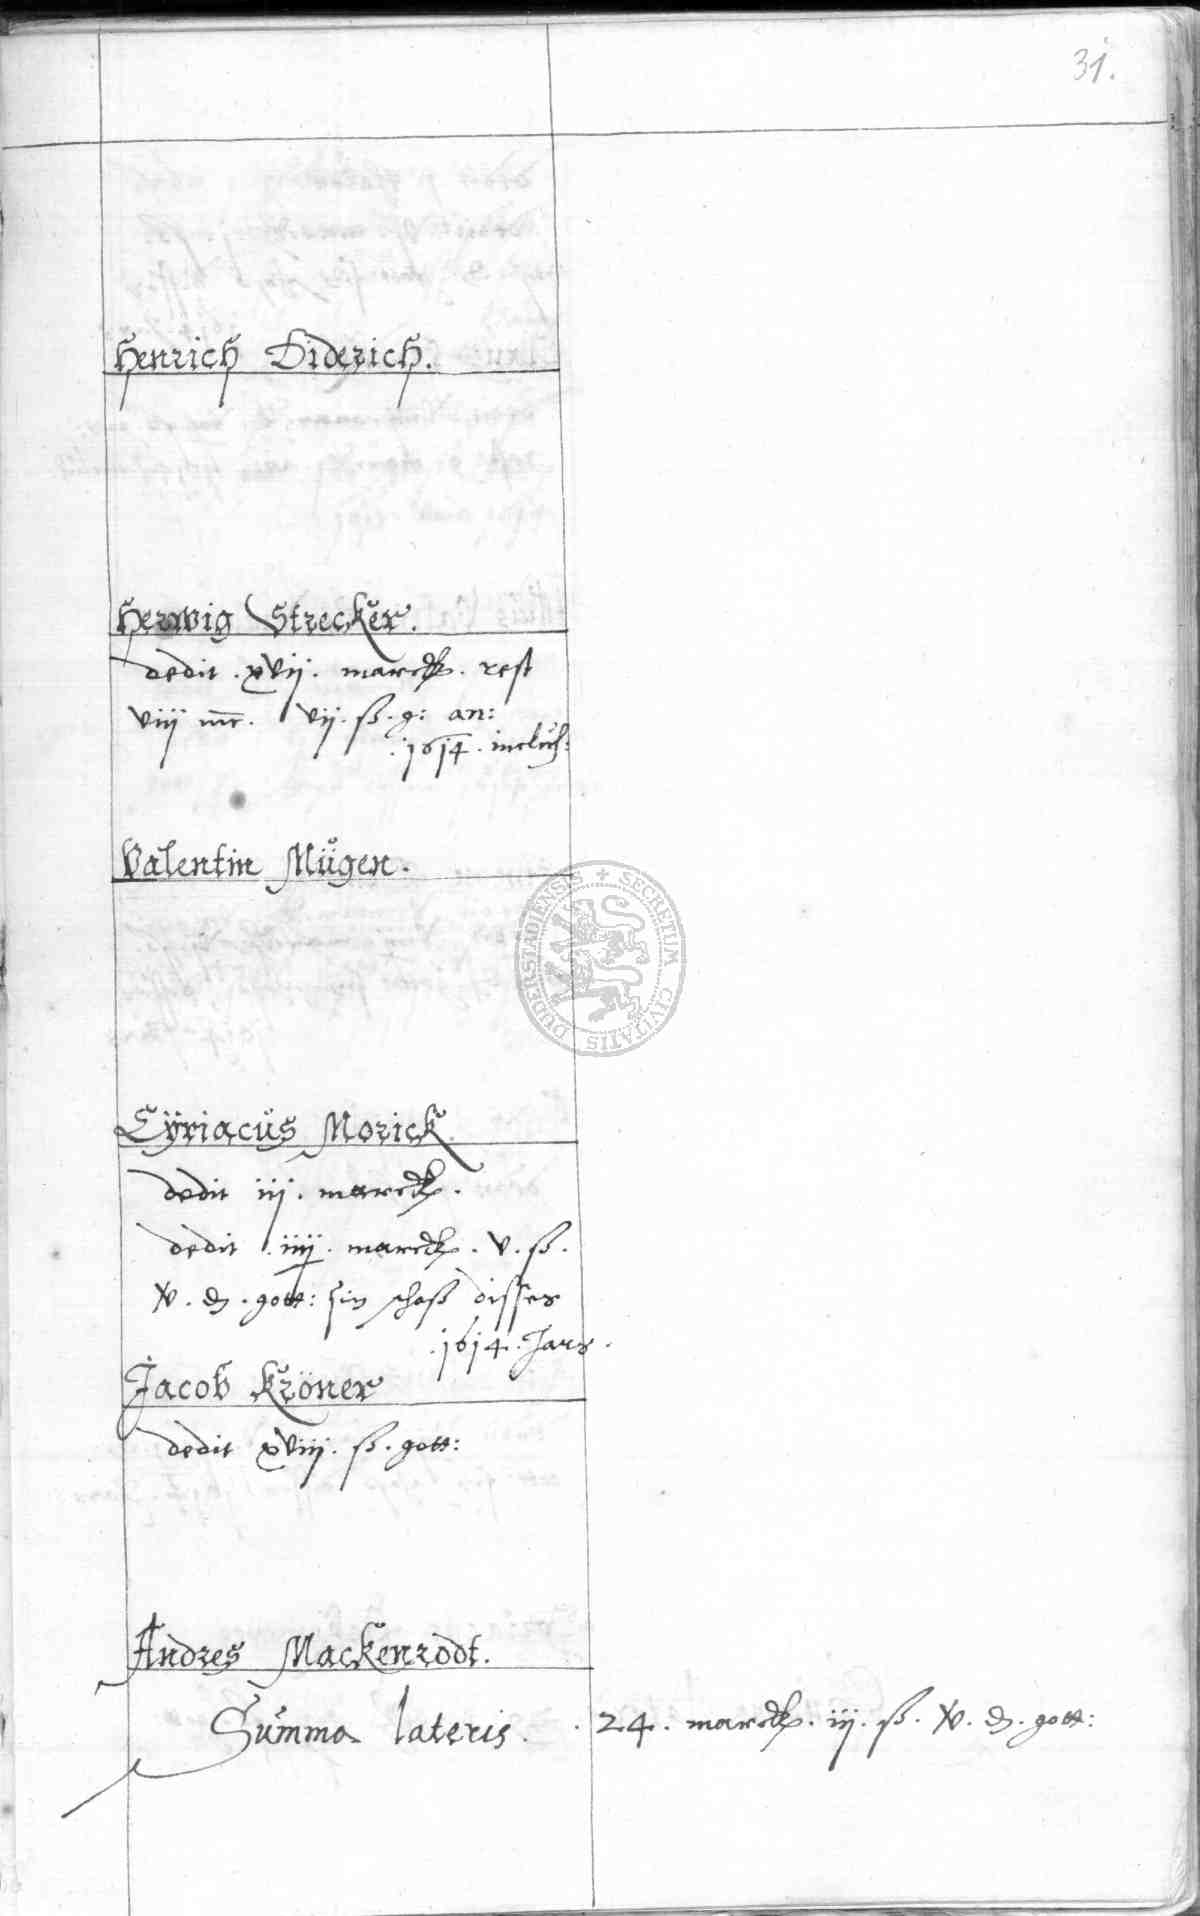 31.
Henrich Diderich.
Herwig Strecker.
dedit . xvij . marck . rest
viij mr . vij . ß . g: an:
. 1614 . inclus:
Valentin Mügen.
Cÿriacus Morick.
dedit iij . marck .
dedit . iiij . marck . v . ß .
xv . d . gott: sin schoß disses
. 1614 . Jars .
Jacob Kröner
dedit xviij . ß . gott:
Andres Mackenrodt.
Summa lateris . . 24 . marck . iij . ß . xv . d . gott:
SECRETUM CIVITATIS DUDERSTADIENSIS